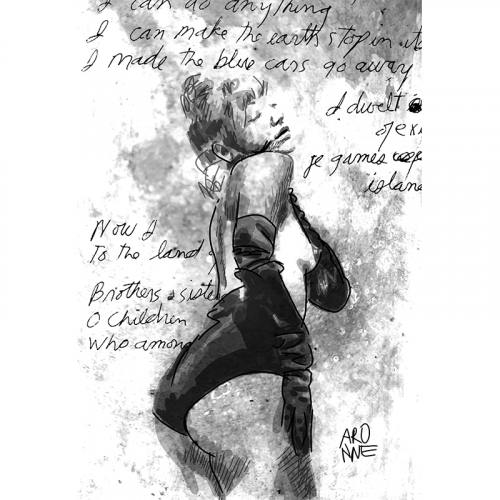 I can do anything!
I can make the earth stop in
I made the blue cars go away
I dwelt
of
games
island
Now I
To the land
Brothers & sisters
O Children
Who among
ARO
NNE